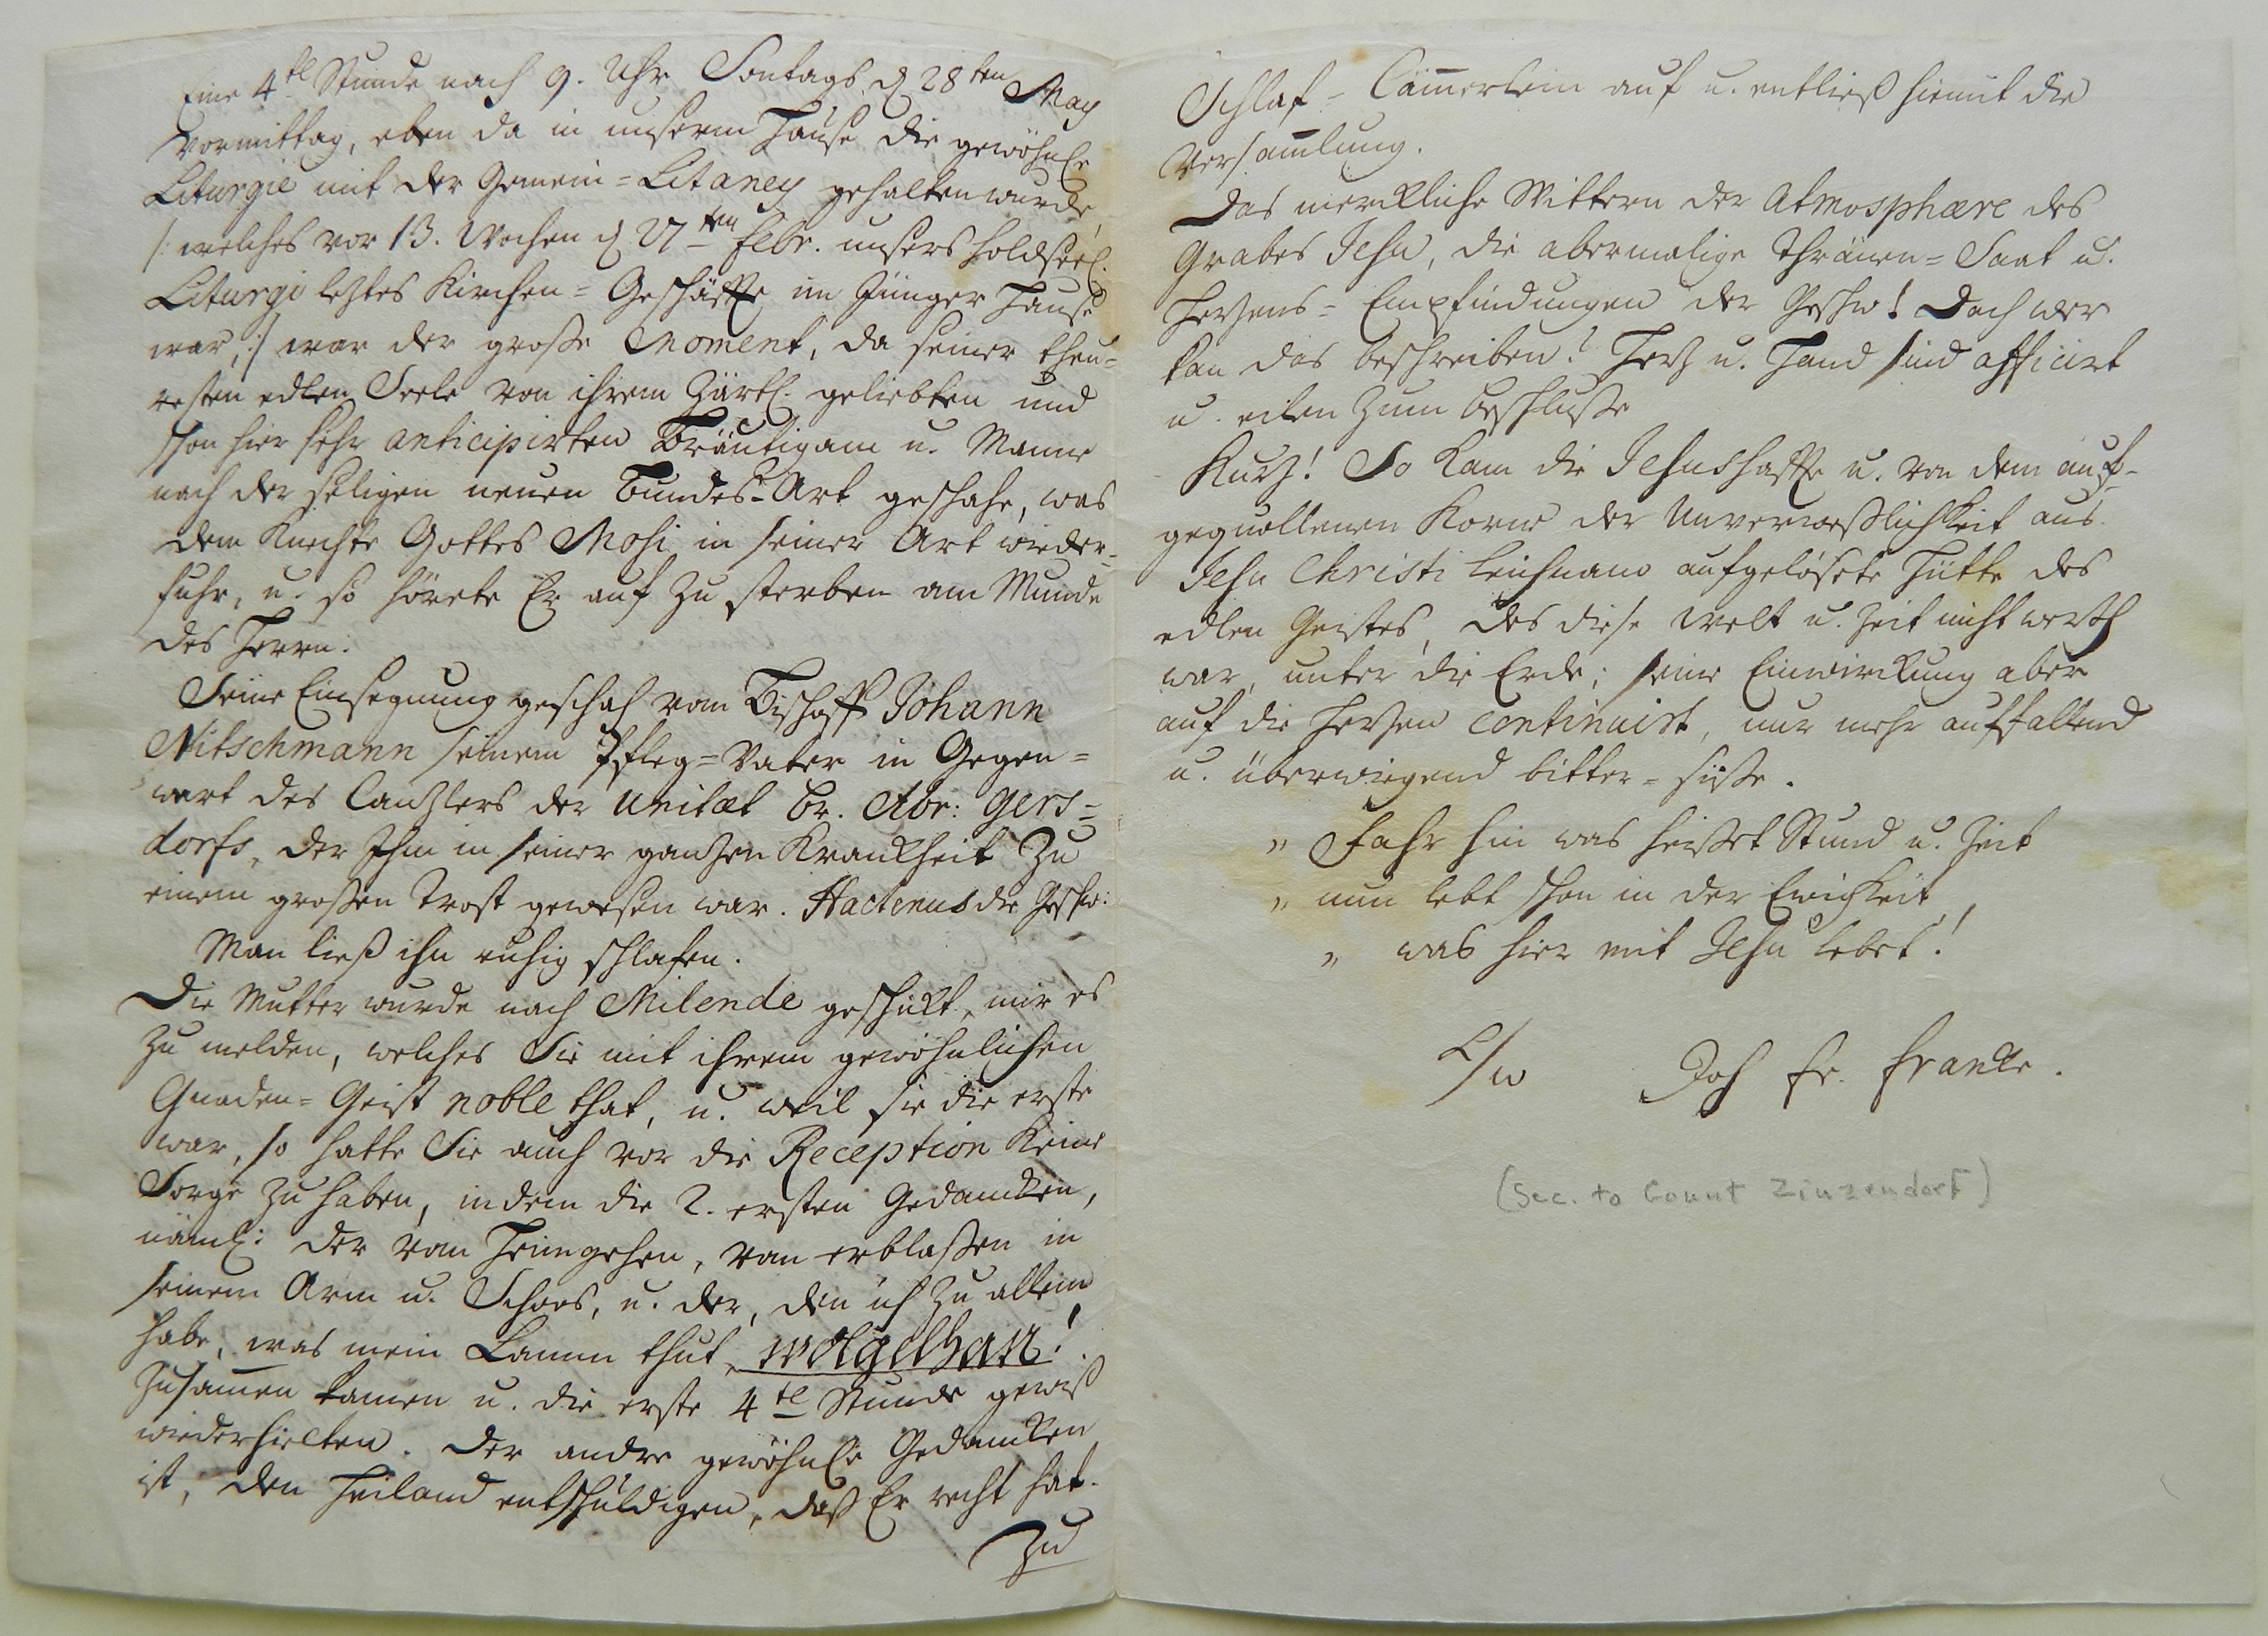 Eine 4tl Stunde nach 9. Uhr Sontags d 28ten May
Vormittag, eben da in unserm Hause die gewöhnle
Liturgie mit der Gemein=Litaney gehalten wurde,
/: welches vor 13. Wochen d 27ten Febr. unsers holdseel.
Liturgi leztes Kirchen=Geschäffte im Jünger Hause
war, :/ war der große Moment, da seiner theu=
resten edlen Seele von ihrem Zärtl. geliebten und
schon hier sehr anticipirten Bräutigam u. Manne
nach der seligen neuen Bundes=Art geschahe, was
dem Knechte Gottes Mosi in seiner Art wieder=
fuhr, u. so hörete Er auf zu sterben am Munde
des Herrn.
Seine Einsegnung geschah vom Bischoff Johann
Nitschmann seinem Pfleg=Vater in Gegen=
wart des Canzlers der Unitæt Br. Abr: Gers=
dorfs, der Ihm in seiner ganzen Krankheit zu
einem großen Trost gewesen war. Hactenus die Geschw:
Man ließ ihn ruhig schlafen.
Die Mutter wurde nach Milende geschickt, mir es
zu melden, welches Sie mit ihrem gewöhnlichen
Gnaden=Geist noble that, u. weil sie die erste
war, so hatte Sie auch vor die Reception keine
Sorge zu haben, indem die 2. ersten Gedancken,
näml: der vom Heimgehen, vom erblaßen in
seinem Arm u. Schoos, u. der, den ich zu allem
habe, was mein Lamm thut, wolgethan!
zusam̄en kamen u. die erste 4tl Stunde gewiß
wiederhielten. Der andre gewöhnle Gedancken
ist, den Heiland entschuldigen, daß Er recht hat.
Zu
Schlaf=Cäm̄erlein auf u. entließ hiemit die
Versam̄lung.
Das merckliche Wittern der Atmosphære des
Grabes Jesu, die abermalige Thränen=Saat u.
Herzens=Empfindungen der Geschw! Doch wer
kan das beschreiben? Herz u. Hand sind afficirt
u. eilen zum Beschluße
Kurz! So kam die Jesushaffte u. von dem auf=
gequollenen Korne der Unverweßlichkeit aus
Jesu Christi Leichnam aufgelösete Hütte des
edlen Geistes, des diese Welt u. Zeit nicht werth
war, unter die Erde; seine Einwirckung aber
auf die Herzen continuirt, nur mehr auffallend
u. überwiegend bitter=süße.
" Fahr hin was heißet Stund u. Zeit
" nun lebt schon in der Ewigkeit,
" was hier mit Jesu lebet!
Joh Fr. Francke.
(Sec. to Count Zinzendorf)